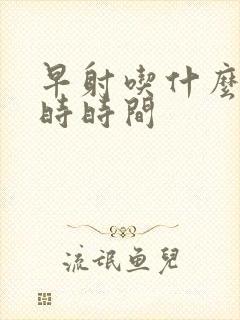 早射喫什麼
時時間
流氓魚兒